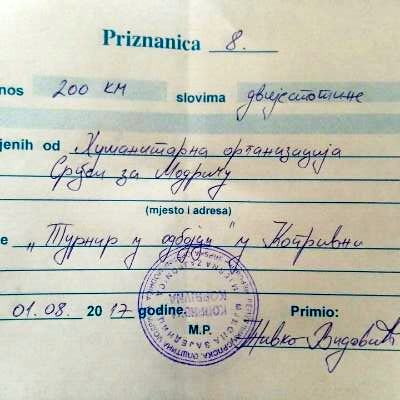 Priznanica 8.
nos 200 KM slovima двјестотине
jenih od Хуманитарна организација
Срби за Модричу
(mjesto i adresa)
e „Турнир у одбојци" у Копривни
01.08. 2017 godine. Primio:
M.P. Живко Видовић
КОПРИВНА